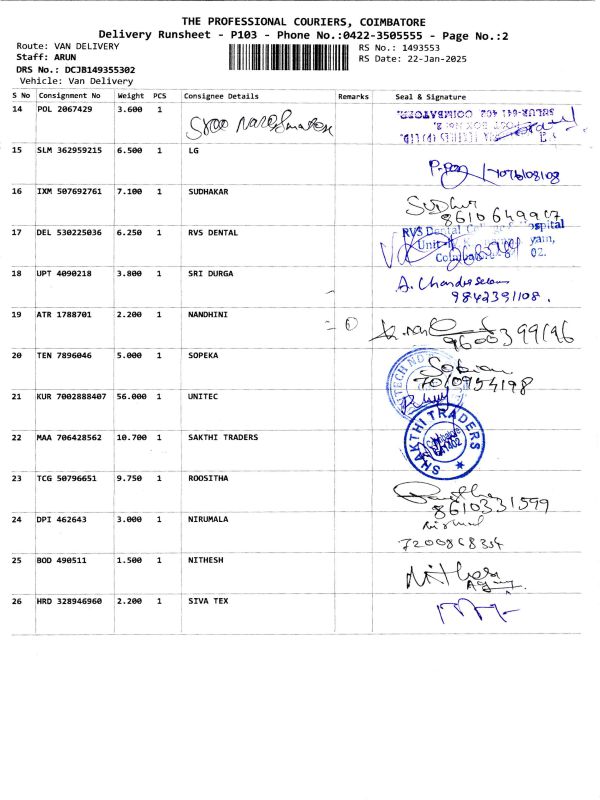 THE PROFESSIONAL COURIERS, COIMBATORE
Delivery Runsheet - P103 - Phone No.:0422-3505555 - Page No.:2
Route: VAN DELIVERY
RS No.: 1493553
Staff: ARUN
RS Date: 22-Jan-2025
DRS No.: DCJB149355302
Vehicle: Van Delivery
S No Consignment No Weight PCS Consignee Details Remarks Seal & Signature
14 POL 2067429 3.600 1
SULUR-641 402 COIMBATORE.
POST BOX No. 2,
15 SLM 362959215 6.500 1 LG
7076108108
16 IXM 507692761 7.100 1 SUDHAKAR
Sudhur
8610649907
17 DEL 530225036 6.250 1 RVS DENTAL
RVS Dental College & Hospital
18 UPT 4090218 3.800 1 SRI DURGA
A. Chandra Selvam
9842391108.
19 ATR 1788701 2.200 1 NANDHINI
9600399196
20 TEN 7896046 5.000 1 SOPEKA
Sobian
7010954198
21 KUR 7002888407 56.000 1 UNITEC
22 MAA 706428562 10.700 1 SAKTHI TRADERS
SHAKTHI TRADERS
23 TCG 50796651 9.750 1 ROOSITHA
8610331599
24 DPI 462643 3.000 1 NIRUMALA
Nirmal
7200868354
25 BOD 490511 1.500 1 NITHESH
26 HRD 328946960 2.200 1 SIVA TEX